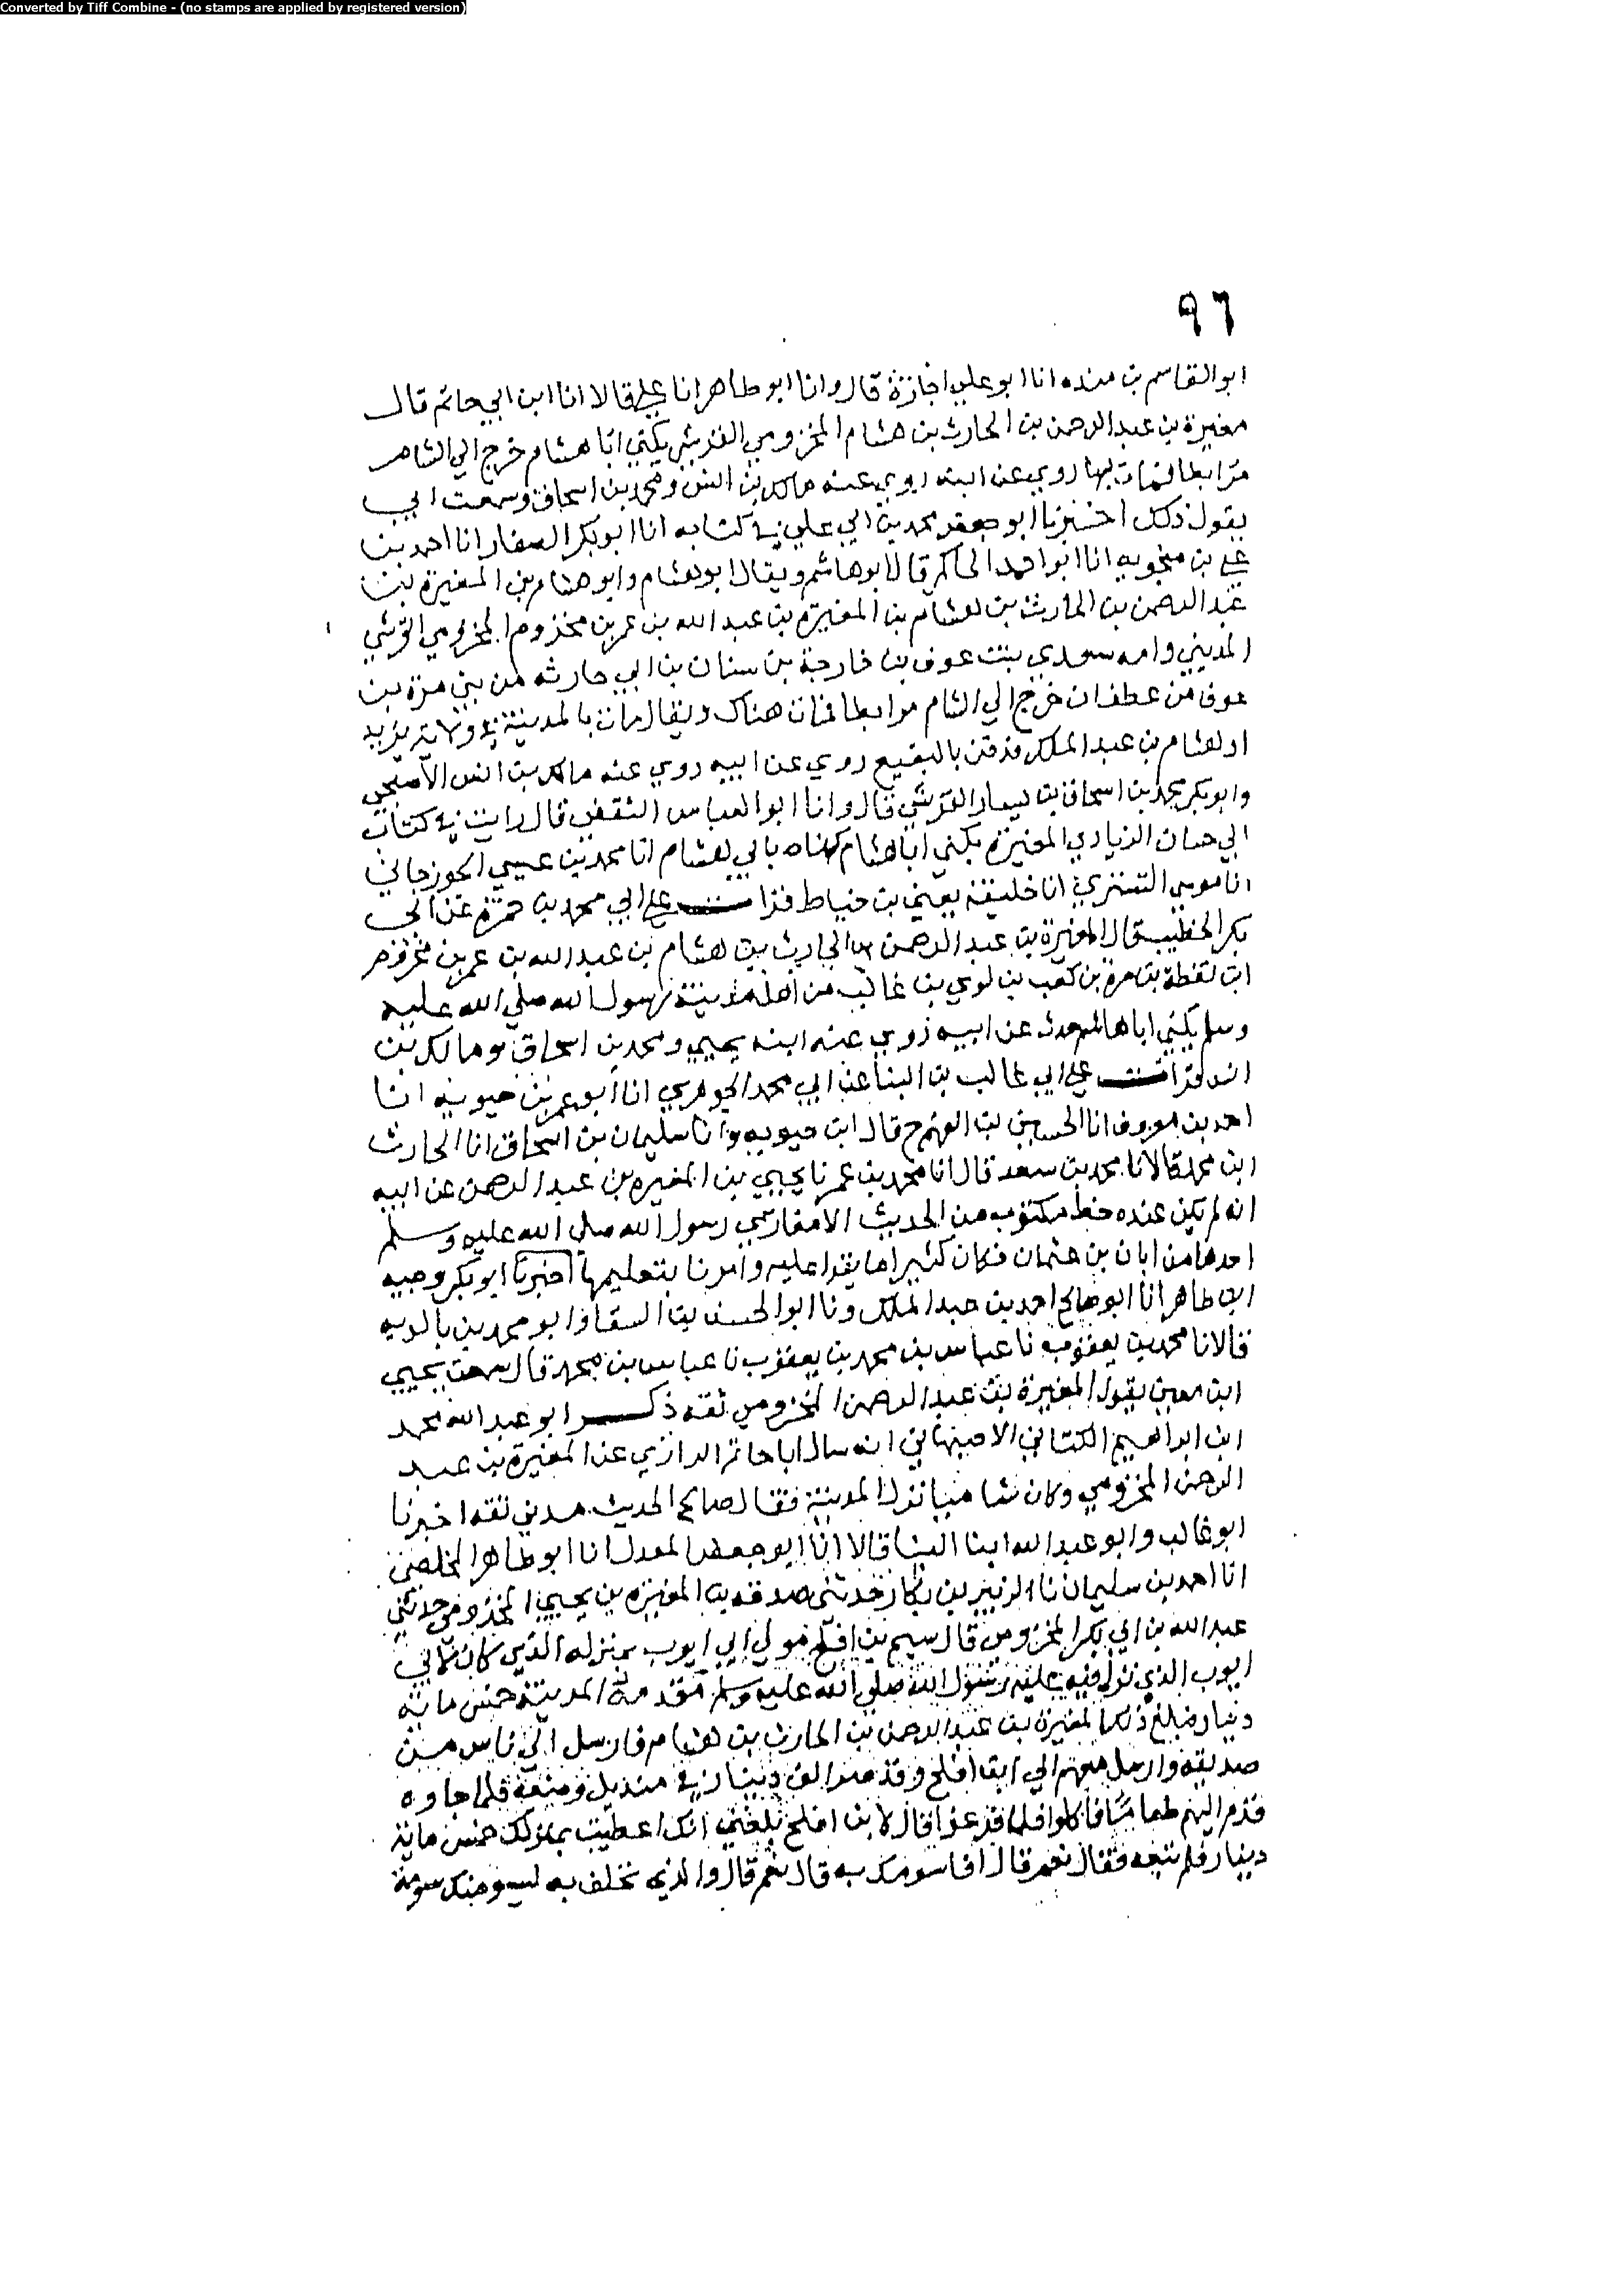 Converted by Tiff Combine - (no stamps are applied by registered version)
٩٦
ابو القاسم بن منده انا ابو علي اجازة قال وانا ابو طاهر انا علي قالا انا ابن ابي حاتم قال
مغيرة بن عبد الرحمن بن الحارث بن هشام المخزومي القرشي يكني ابا هشام خرج الي الشام
مرابطا فمات بها روي عن ابيه روي عنه مالك بن انس ومحمد بن اسحاق وسمعت ابي
يقول ذلك اخبرنا ابو جعفر محمد بن ابي علي في كتابه انا ابو بكر الصفار انا احمد بن
علي بن منجويه انا ابو احمد الحاكم قال ابو هاشم ويقال ابو هشام وابو هشام بن المغيرة بن
عبد الرحمن بن الحارث بن هشام بن المغيرة بن عبد الله بن عمر بن مخزوم المخزومي القرشي
المديني وامه سعدي بنت عوف بن خارجة بن سنان بن ابي حارثه من بني مرة بن
عوف من عطفان خرج الي الشام مرابطا فمات هناك ويقال مات بالمدينة في ولاية يزيد
او هشام بن عبد الملك فدفن بالبقيع روي عن ابيه روي عنه مالك بن انس الاصبحي
وابو بكر محمد بن اسحاق بن يسار القرشي قال وانا ابو العباس الثقفي قال رايت في كتاب
ابي حسان الزيادي المغيرة يكني ابا هشام كناه بابي هشام انا محمد بن عيسي الجوزجاني
انا موسي التستري انا خليفة يعني بن خياط قرات علي ابي محمد بن حمزة عن ابي
بكر الخطيب قال المغيرة بن عبد الرحمن بن الحارث بن هشام بن عبد الله بن عمر بن مخزوم
ابن لقظة بن مرة بن كعب بن لوي بن غالب من اهل مدينة رسول الله صلي الله عليه
وسلم يكني ابا هاشم حدث عن ابيه روي عنه ابنه يحيي ومحمد بن اسحاق ومالك بن
انس قرات علي ابي غالب بن البنا عن ابي محمد الجوهري انا ابو عمر بن حيويه انا
احمد بن معروف انا الحسين بن الفهم ح قال ابن حيويه وانا سليمان بن اسحاق انا الحارث
ابن محمد قالا انا محمد بن سعد قال انا محمد بن عمر نا يحيي بن المغيرة بن عبد الرحمن عن ابيه
انه لم يكن عنده خط مكتوب من الحديث الا مغازي رسول الله صلي الله عليه وسلم
اخذها من ابان بن عثمان فكان كثيرا ما يقرا عليه وامرنا بتعليمها اخبرنا ابو بكر وجيه
ابن طاهر انا ابو صالح احمد بن عبد الملك ونا ابو الحسن بن السقا وابو محمد بن بالويه
قالا نا محمد بن يعقوب نا عباس بن محمد بن يعقوب نا عباس بن محمد قال سمعت يحيي
ابن معين يقول المغيرة بن عبد الرحمن المخزومي ثقه ذكر ابو عبد الله محمد
ابن ابراهيم الكتاني الاصبهاني انه سال ابا حاتم الرازي عن المغيرة بن عبد
الرحمن المخزومي وكان شاميا نزل المدينة فقال صالح الحديث مديني ثقه اخبرنا
ابو غالب وابو عبد الله ابنا البنا قالا انا ابو جعفر المعدل انا ابو طاهر المخلص
انا احمد بن سليمان نا الزبير بن بكار حدثني صدقه بن المغيرة بن يحيي المخزومي حدثني
عبد الله بن ابي بكر المخزومي قال سيم بن افلح مولي ابي ايوب بمنزله الذي كان لابي
ايوب الذي نزل فيه عليه رسول الله صلي الله عليه وسلم مقدمه المدينة خمس مائة
دينار فبلغ ذلك المغيرة بن عبد الرحمن بن الحارث بن هشام فارسل الي ناس من
صديقه وارسل معهم الي ابن افلح وقد صر الف دينار في منديل وضعه فلما جاوه
قدم اليهم طعاما فاكلوا فلما فرغوا قال لابن افلح بلغني انك اعطيت بمنزلك خمس مائة
دينار فلم تبعه فقال نعم قال افاسومك به قال نعم قال والذي نحلف به ليسومنك سومة